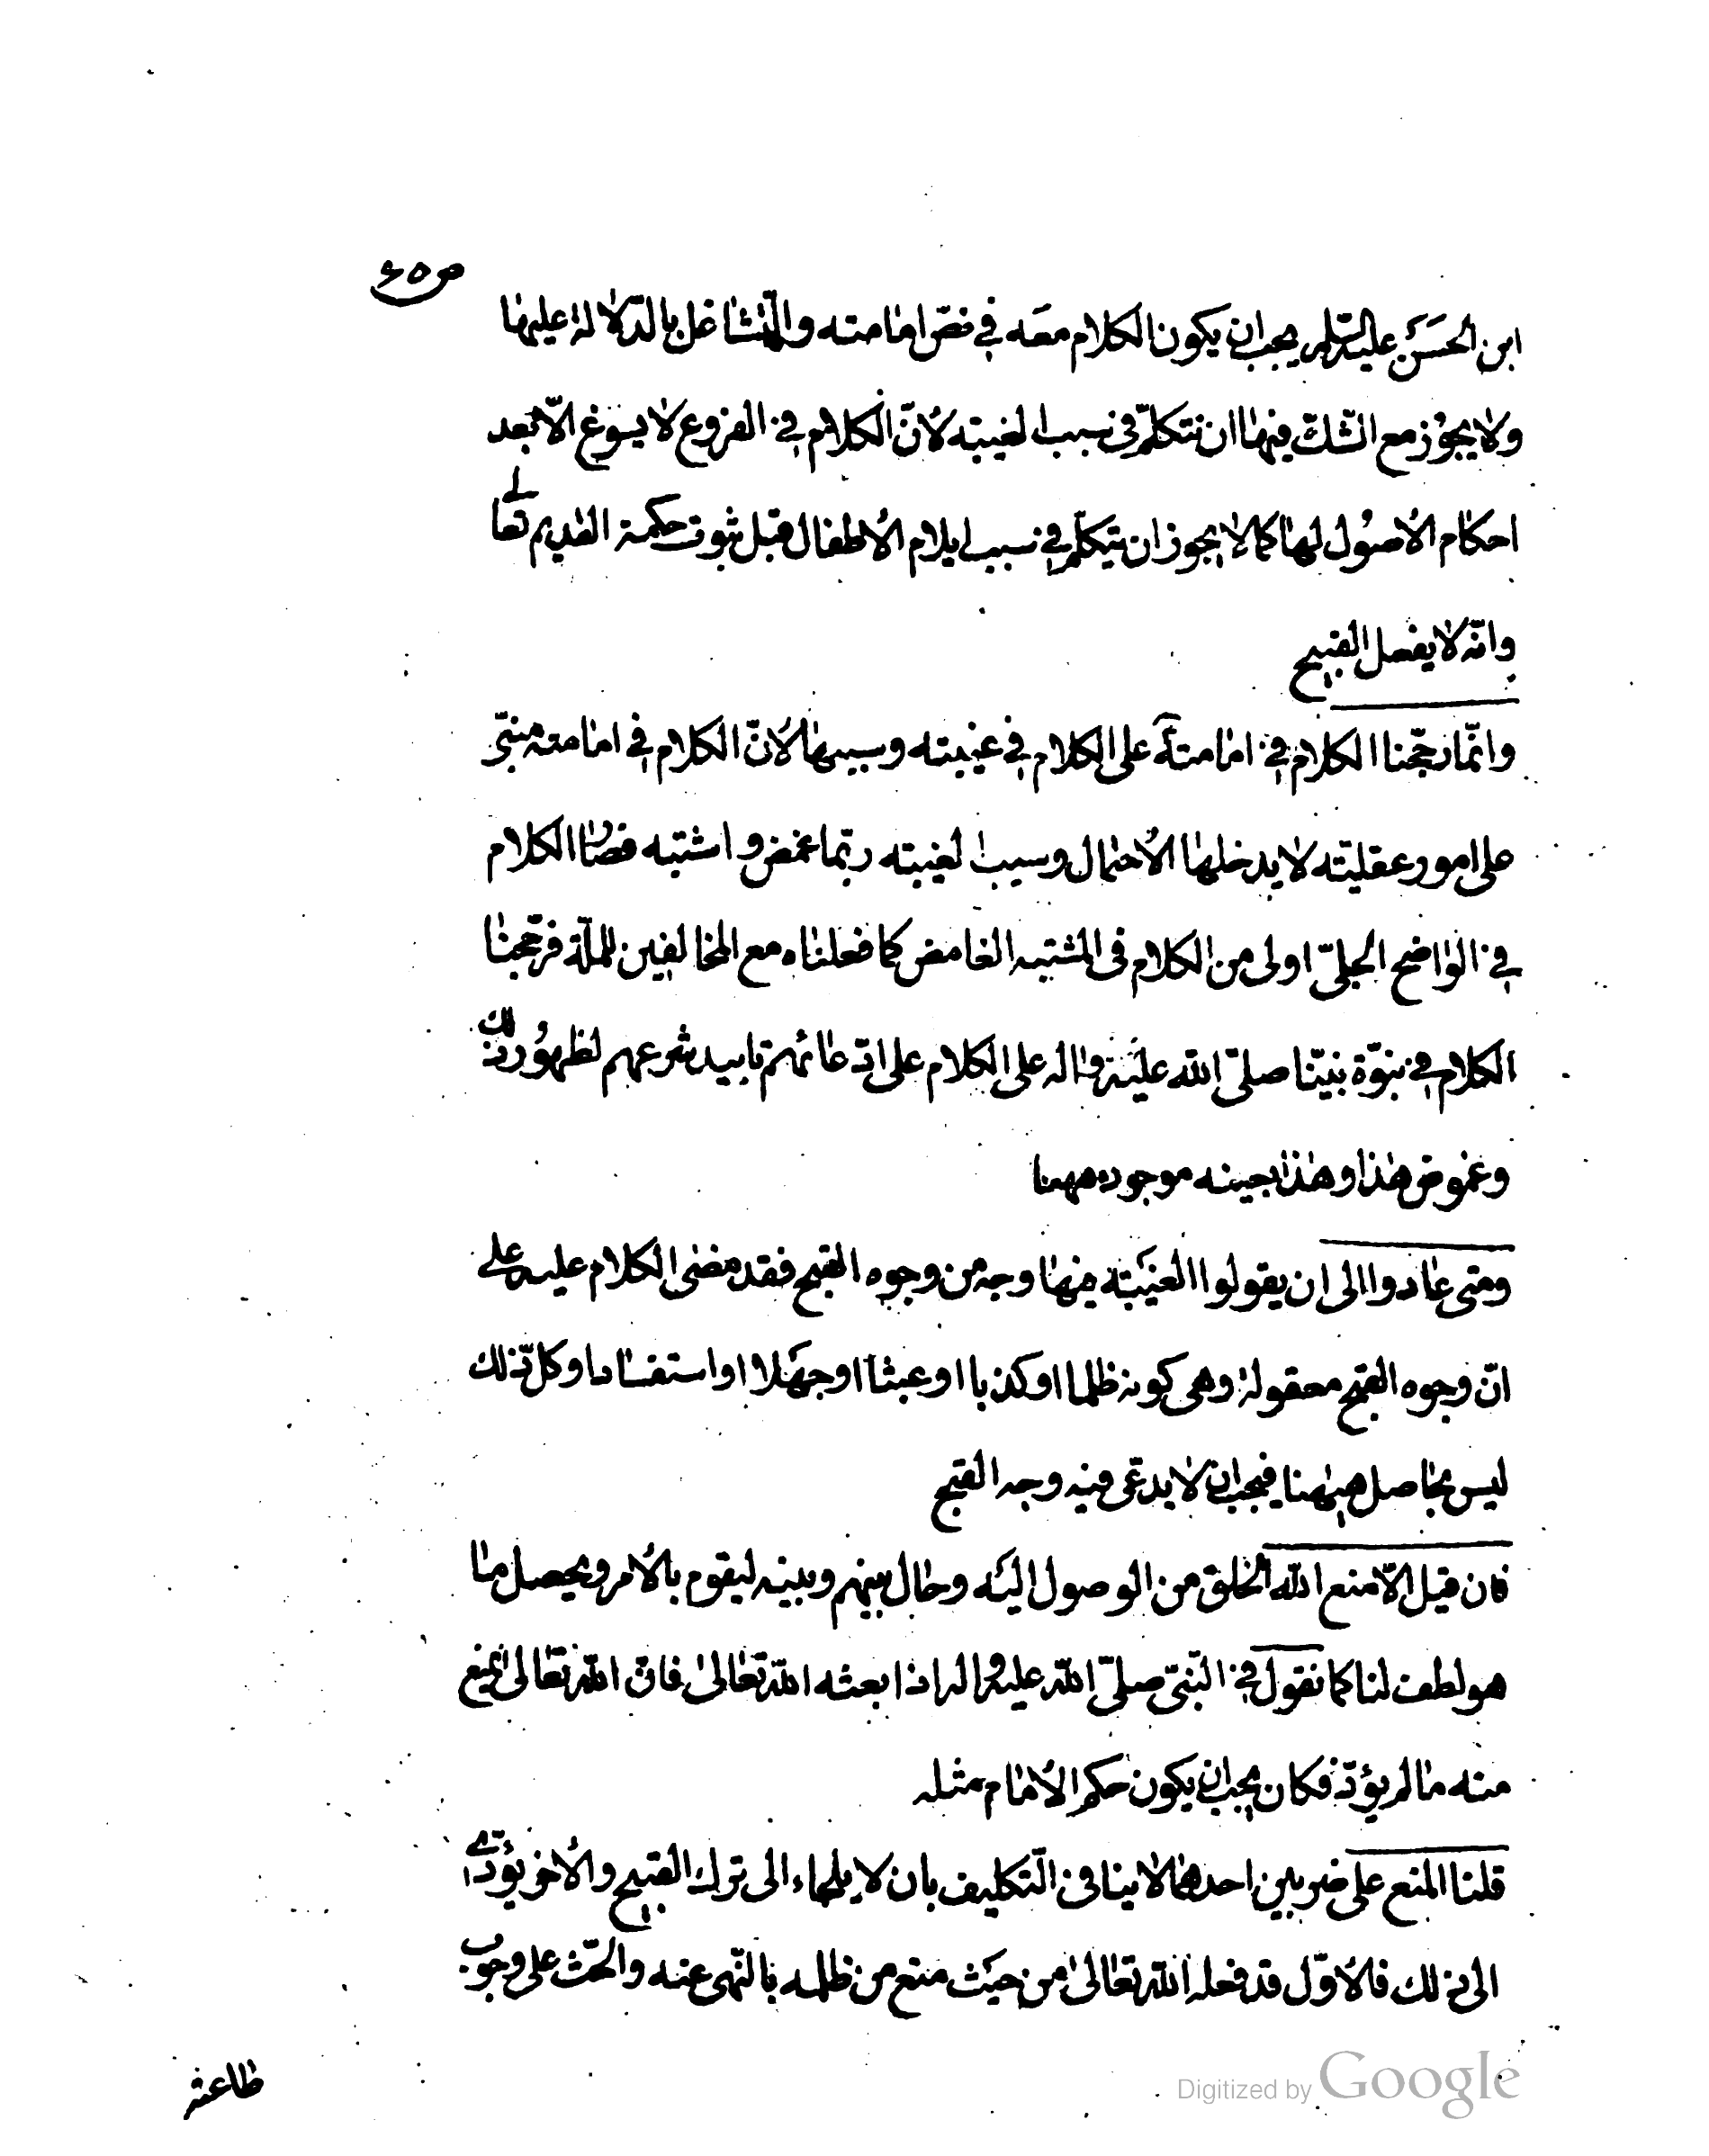 ص ٦٥
ابن الحَسَن عليه السّلم يجب ان يكون الكلام معَه في نصّ امامته والتّشاغل بالدّلالة عليها
ولا يجوز مع الشّكّ فيها ان نتكلّم في سبب الغيبته لأنّ الكلام في الفروع لا يسوغ الّا بعد
احكام الأصُول لها كما لا يجوز ان يتكلّم في سبب ايلام الأطفال قبل ثبوت حكمة القديم تعالى
وانّه لا يفعل القبيح
وانّما رجّحنا الكلام في امامته على الكلام في غيبته وسببها لأنّ الكلام في امامته مبنّى
على امور عقليّته لا يدخلها الأحتمال وسبب الغيبته ربّما غمض واشتبه فصار الكلام
في الواضح الجلىّ اولى من الكلام فى المشتبه الغامض كما فعلناه مع المخالفين للملّة فرجّحنا
الكلام في نبوّة نبيّنا صلىّ اللّه عليه واله على الكلام على ادّعائهم تابيد شرعهم لظهُور ذلك
وغموض هذا وهذا بعينه موجود ههنا
ومتى عادوا الى ان يقولوا الغيَبته فيها وجه من وجوه القبح فقد مضى الكلام عليه على
انّ وجوه القبح معقولة وهى كونه ظلما او كذبا او عبثا او جهَلا او استفسادا وكلّ ذلك
ليس بحاصل هيهنا فيجب ان لا يدّعى فيه وجه القبح
فان قيل الّا منع اللّه الخلق من الوصول اليَه وحال بينهم وبينه ليقوم بالأمر ويحصل ما
هو لطف لنا كما نقول في النّبىّ صلىّ اللّه عليه واله اذا بعثه اللّه تعالىٰ فانّ اللّه تعالىٰ يمنع
منه ما لم يؤدّ فكان يجب ان يكون حكم الأمام مثله
قلنا المنع على ضربين احدهما لا ينافى التّكليف بان لا يلجاء الى ترك القبيح والأخر يؤدّى
الى ذلك فالأوّل قد فعله اللّه تعالىٰ من حيَث منع من ظلمه بالنّهى عنه والحّث على وجوب
طاعته
Digitized by Google